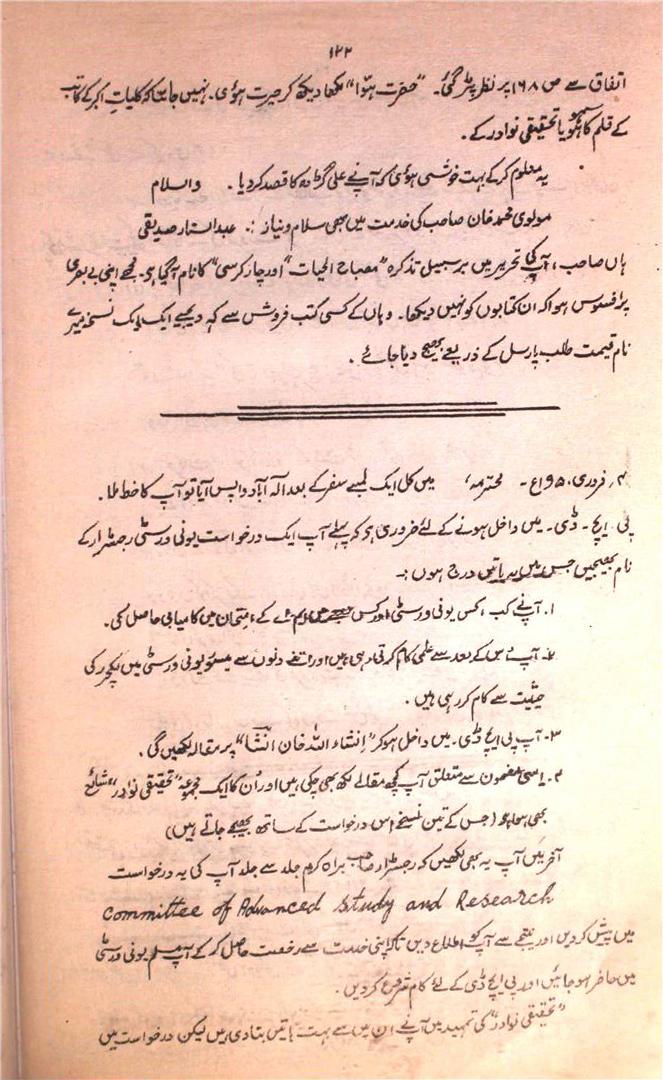 ۱۲۲
اتفاق سے ص ۱۶۸ پر نظر پڑ گئی۔ "حضرت ہوّا" لکھا دیکھ کر حیرت ہوئی۔ نہیں جانتا کہ کلیاتِ اکبر کے کاتب
کے قلم کا سہو ہے یا تحقیقی نوادر کے۔
یہ معلوم کرکے بہت خوشی ہوئی کہ آپ نے علی گڑھ کا قصد کردیا۔ والسلام
مولوی محمد خان صاحب کی خدمت میں بھی سلام و نیاز ۔: عبدالستار صدیقی
ہاں صاحب، آپ کی تحریر میں برسبیل تذکرہ "مصباح الحیات" اور چار کرسی" کا نام آگیا ہی۔ مجھے اپنی بے بصری
پر افسوس ہوا کہ ان کتابوں کو نہیں دیکھا۔ وہاں کے کسی کتب فروش سے کہہ دیجیے ایک ایک نسخہ میرے
نام قیمت طلب پارسل کے ذریعے بھیج دیا جائے۔
۴؍ فروری، ۱۹۵۰ع۔ محترمہ، میں کل ایک لمبے سفر کے بعد الہ آباد واپس آیا تو آپ کا خط ملا۔
پی۔ ایچ۔ ڈی۔ میں داخل ہونے کے لئے ضروری ہی کہ پہلے آپ ایک درخواست یونی ورسٹی رجسٹرار کے
نام بھیجیں جس میں یہ باتیں درج ہوں :۔
۱۔ آپ نے کب، کس یونی ورسٹی اور کس درجے میں ایم۔اے کے امتحان میں کامیابی حاصل کی۔
۲۔ آپ اس کے بعد سے علمی کام کرتی رہی ہیں اور اتنے دنوں سے میسور یونی ورسٹی میں لکچرر کی
حیثیت سے کام کررہی ہیں۔
۳۔ آپ پی ایچ ڈی۔ میں داخل ہوکر "انشاء اللہ خان انشا" پر مقالہ لکھیں گی۔
۴۔ اسی مضمون سے متعلق آپ کچھ مقالے لکھ بھی چکی ہیں اور اُن کا ایک مجموعہ "تحقیقی نوادر" شائع
بھی ہوا ہو (جس کے تین نسخے اس درخواست کے ساتھ بھیجے جاتے ہیں)
آخر میں آپ یہ بھی لکھیں کہ رجسٹرار صاحب براہ کرم جلد سے جلد آپ کی یہ درخواست
Committee of Advanced Study and Research
میں پیش کردیں اور نتیجے سے آپ کو اطلاع دیں تاکہ اپنی خدمت سے رخصت حاصل کرکے آپ مسلم یونی ورسٹی
میں حاضر ہوجائیں اور پی ایچ ڈی کے لئے کام شروع کردیں۔
"تحقیقی نوادر" کی تمہید میں آپ نے ان میں سے بہت باتیں بتادی ہیں لیکن درخواست میں